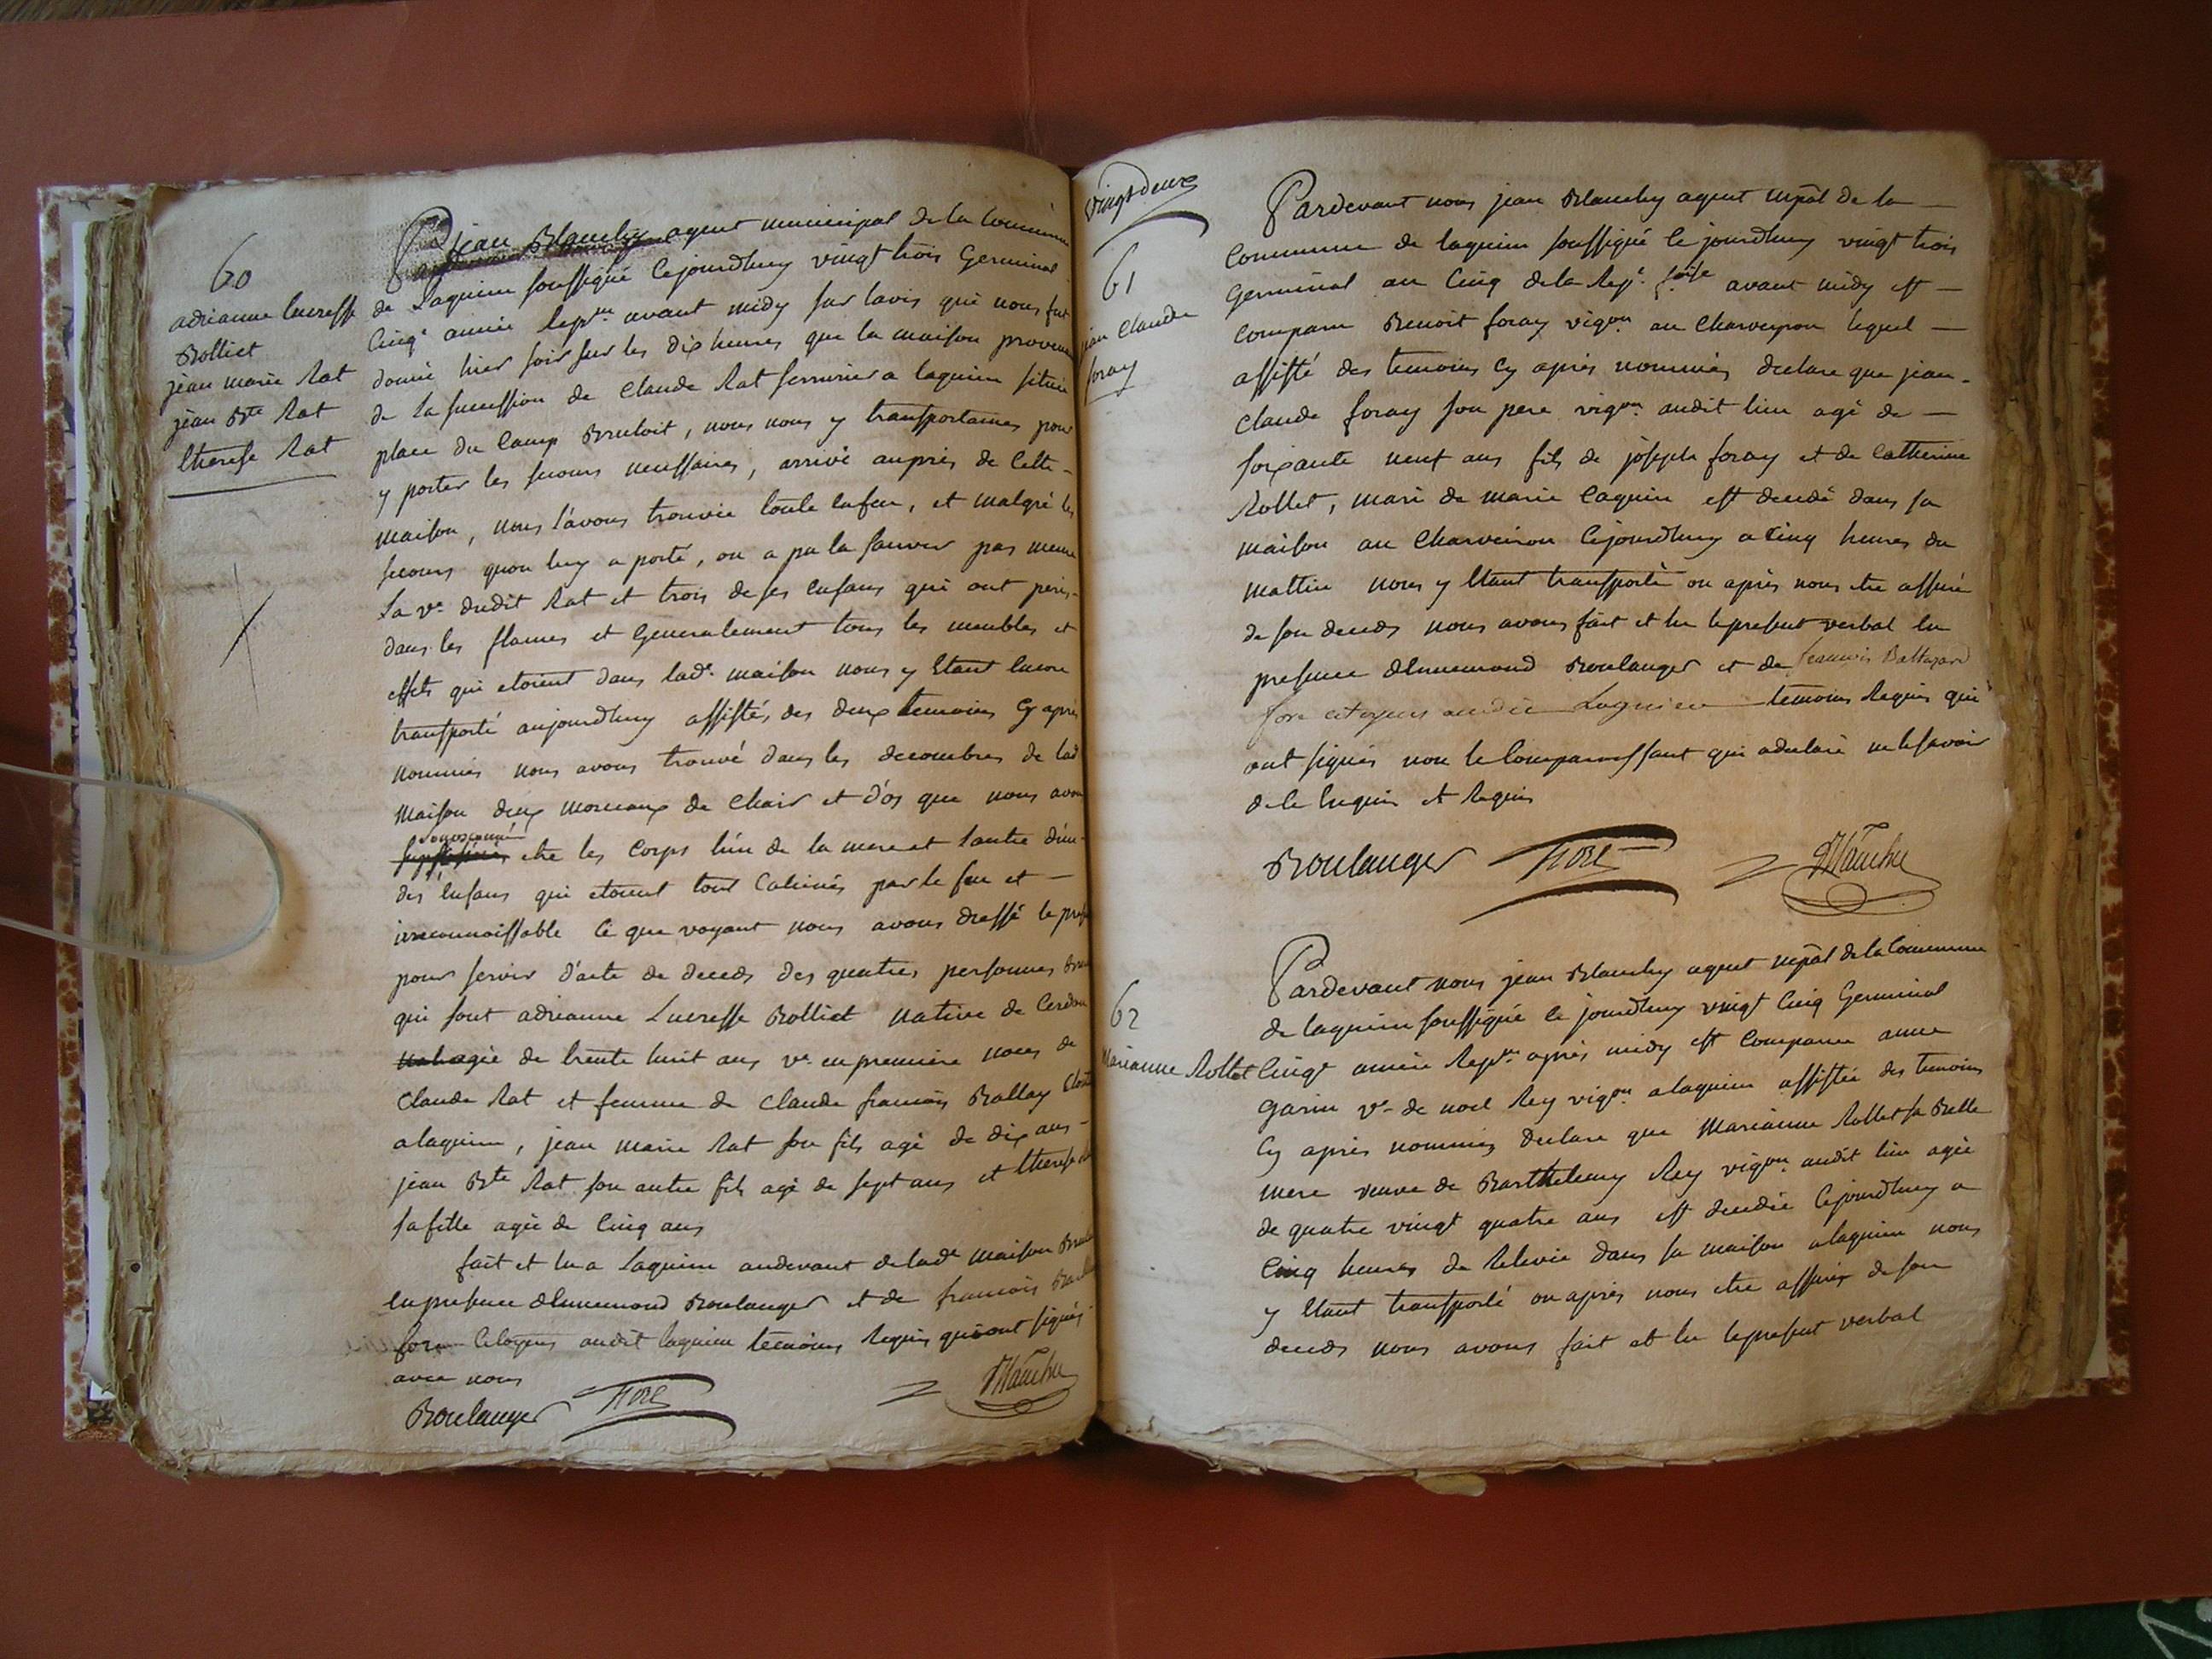 60
adrianne lucresse
Rolliet
jean marie Rat
jean Bte Rat
therese Rat
jean Blanchy agent municipal de la Commune
de Laguieu soussigné Cejourdhuy vingt trois Germinal
Cinqe année Repne avant midy sur lavis qui nous fut
donné hier soir sur les dix heures que la maison provenue
de la succession de Claude Rat serrurier a laguieu située
place du Camp Bruloit, nous nous y transportames pour
y porter les secours necessaires, arrivé auprès de Cette
maison, nous l'avons trouvée toute enfeu, et malgré les
secours quon luy a porté, on a pu la sauver pas meme
la ve dudit Rat et trois de ses enfans qui ont peris
dans les flames et Generalement tous les meubles et
effets qui etoient dans lade maison nous y Etant encore
transporté aujourdhuy assistés des deux temoins Cy après
nommés nous avons trouvé dans les decombres de lad
maison deux morceaux de Chair et d'os que nous avons
etre les Corps l'un de la mere et l'autre d'un
des enfans qui etoient tout Calcinés par le feu et —
irreconnoissable Ce que voyant nous avons dressé le
pour servir d'acte de deceds des quatres personnes
qui sont adrianne Lucresse Rolliet native de Cerdon
agée de trente huit ans ve en premiere noces de
Claude Rat et femme de Claude françois Ballay
alaguieu, jean marie Rat son fils agé de dix ans -
jean Bte Rat son autre fils agé de sept ans et therese
sa fille agée de Cinq ans
fait et lu a Laguieu audevant de lade maison
en presence d'Ennemond Boulanger et de françois
fore Citoyens audit laguieu temoins Requis qui ont signés
avec nous
Boulanger FORE Blanchy
vingt deux
61
jean Claude
foray
Pardevant nous jean Blanchy agent mpál de la —
Commune de laguieu soussigné Ce jourdhuy vingt trois
Germinal an Cinq de la Repe fse avant midy est —
Comparu Benoit foray vigon au Charveyron lequel —
assisté des temoins Cy après nommés declare que jean-
Claude foray son pere vigon audit lieu agé de —
soixante neuf ans fils de joseph foray et de Catherine
Rollet, mari de marie Caquin est decedé dans sa
maison au Charveiron Cejourdhuy a Cinq heures du
mattin nous y Etant transporté ou après nous etre assuré
de son deceds nous avons fait et lu le present verbal en
presence d'Ennemond Boulanger et de francois Baltazard
fore citoyens audit Lagnieu temoins Requis qui
ont signés non le Comparoissant qui a declaré ne le savoir
de le Enquis et Requis
Boulanger FORE Blanchy
62
Marianne Rollet
Pardevant nous jean Blanchy agent mpál de la Commune
de laguieu soussigné Ce jourdhuy vingt Cinq Germinal
Cinqe année Repne après midy est Comparue anne
Garin ve de noel Rey vigon alaguieu assistée des temoins
Cy après nommés declare que Marianne Rollet sa Belle
mere veuve de Barthelemy Rey vigon audit lieu agée
de quatre vingt quatre ans est decedée Cejourdhuy a
Cinq heures de Relevée dans sa maison alaguieu nous
y Etant transporté ou après nous etre assuré de son
deceds nous avons fait et lu le present verbal